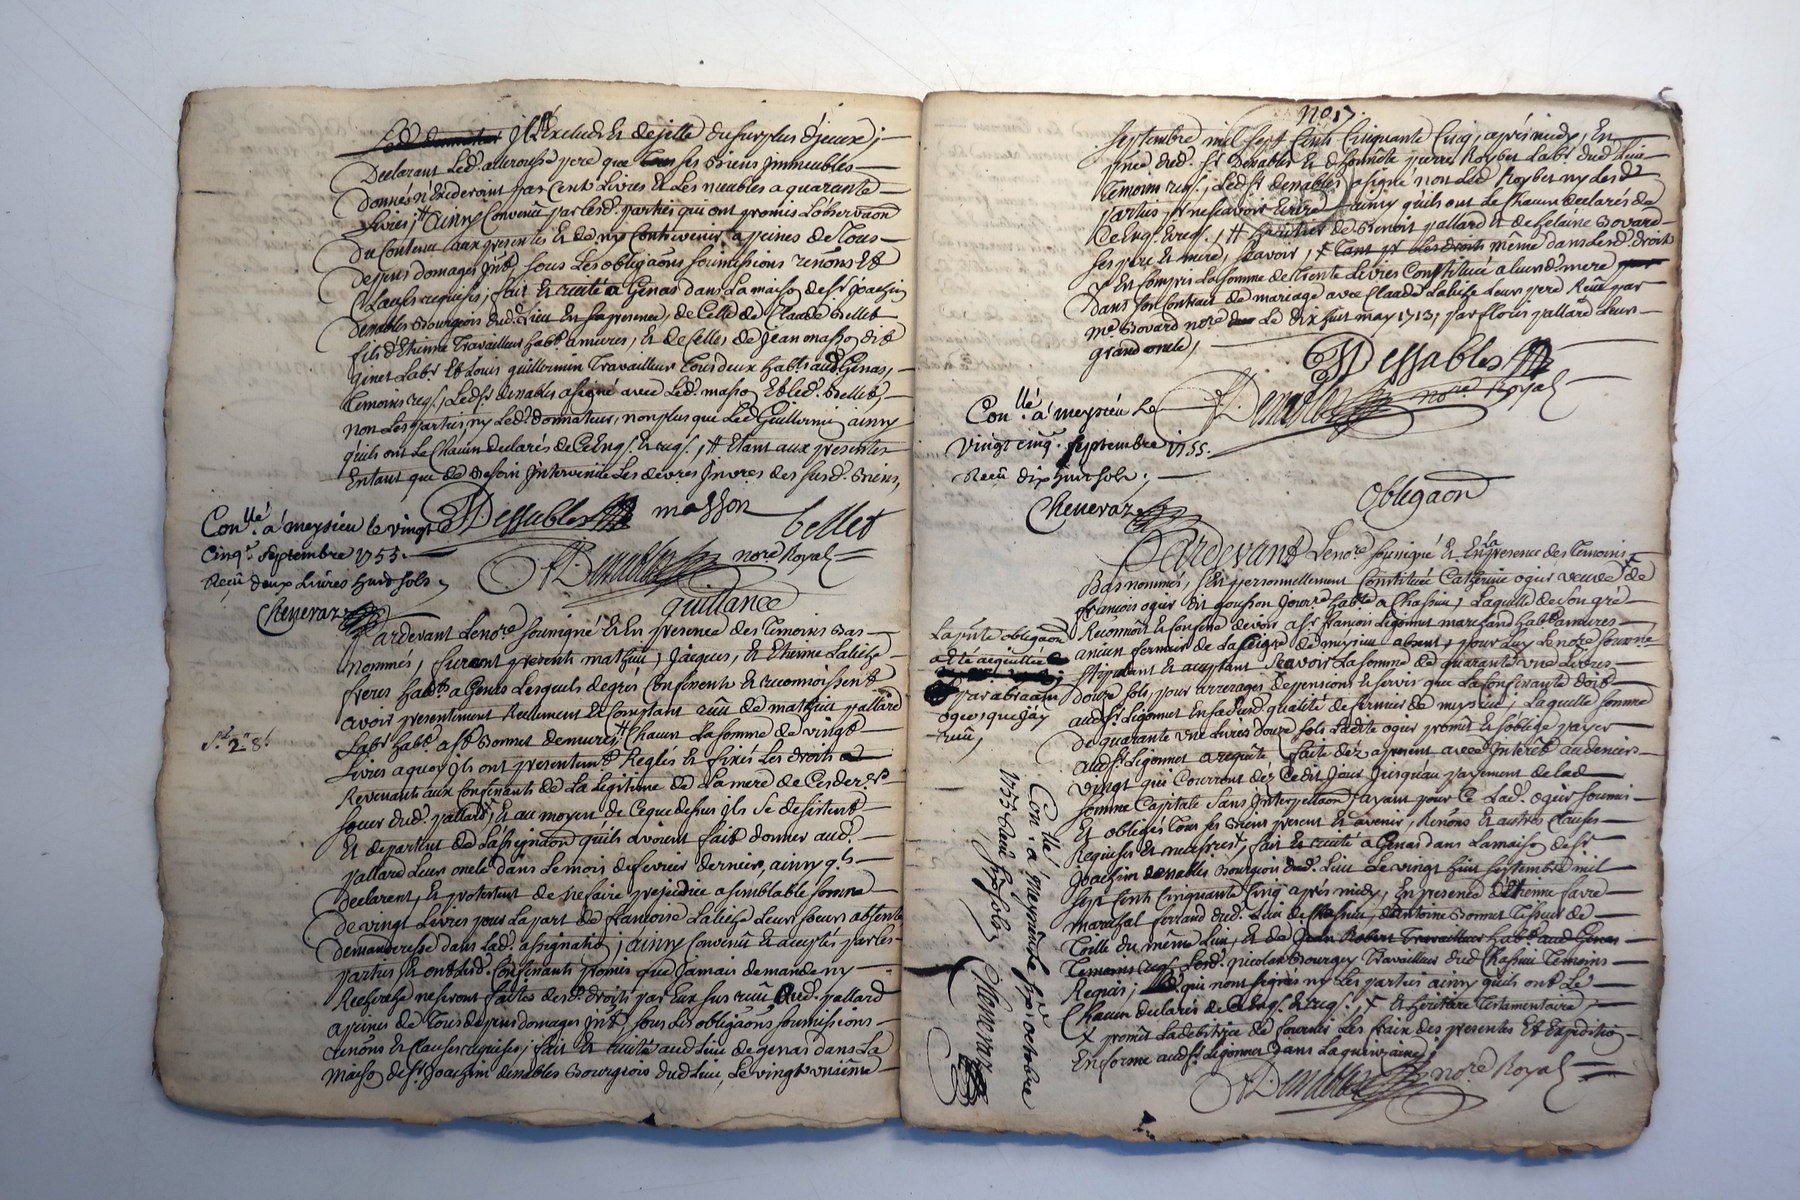 Led. donnateur Il Exclud Et de jelle du surplus d'jceux ;
Declarant Led. pere que tous ses Biens Jmmeubles
donnés n'Excederoint pas Cent Livres Et Les meubles a quarante
Livres ; ainsy Convenu par lesd. parties qui ont promis L'observaon
du Contenu aux presentes Et de ny Contrevenir a peines de Tous
depens domages Jnt, sous Les obligaons soumissions renons Et
Clauses requises ; fait Et recité a Genas dans La maison de sr Joachim
denables Bourgeois dud. Lieu En sa presence, de Celle de Claude Bellet
fils d'Etienne Travailleur habt. a mures, Et de Celles de Jean masson dit
ginet Labr. Et Louis guillermin Travailleur Tous deux habts. aud. Genas,
Temoins reqs., Led. sr denables a signé avec Led. masson Et led. Bellet,
non Les parties, ny Led. donnateur, non plus que Led. Guillermin ainsy
qu'ils ont Le Chacun declarés de Ce Enqs. Et reqs. , Etant aux presentes
Entant que de Besoin Intervenue Les
Dessables masson bellet
Conllé. a meysieu le vingt
Cinq. septembre 1755.
Reçû deux Livres huit sols,
Cheneraz
Denables nore. Royal
quittance
Pardevant Le nore. soussigné Et En presence des Temoins Bas
nommés, furent presents mathieu, Jacques, Et Etienne
freres habts. a Genas Lesquels de grés Confessent Et reconnoissent
avoir presentement Reellement Et Comptant reçû de mathieu pallard
Labr. habt. a st Bonnet de mures, Chacun La somme de vingt
Livres a quoy Ils ont presentement Reglés Et fixés Les droits
Revenants aux Confessants de La Legitime de La mere de Ces der.rs
soeur dud. pallard, Et au moyen de Ce que dessus ils se desistent
Et departent de L'assignaon qu'ils avoient fait donner aud.
pallard Leur oncle dans Le mois de fevrier dernier, ainsy qls.
declarent, Et protestent de ne faire prejudice a semblable somme
de vingt Livres pour La part de francoise Leur soeur absente
demanderesse dans Lad. assignation ; ainsy Convenû Et acceptés par les
parties Et ont Lesd. Confessants promis que Jamais demande ny
Recherche ne seront faites desd. droits par Eux sus reçûs aud. pallard
a peines de Tous depens domages Jnt, sous Les obligaons soumissions
renons Et Clauses requises ; fait Et recité aud. Lieu de genas dans La
maison de sr. Joachim denables Bourgeois dud. Lieu, Le vingt unieme
septembre mil sept Cents Cinquante Cinq, après midy, En
pnce dud. sr denables Et d'honnête pierre Roybet Labr. dud. Lieu
Temoins reqs. , Led. sr denables a signé non Led. Roybet ny Lesd.
parties pr ne scavoir Ecrire ainsy qu'ils ont Le Chacun declarés de
Ce Enqs. Et reqs. , de Benoit pallard Et de helaine Bovard
ses pere Et mere, scavoir, tant pr Les droits même dans Lesd. droits
y Est Compris La somme de Trente Livres Constituée a leurd. mere
dans son Contract de mariage avec Claude Leur pere Reçû par
me. Bovard nore. Le dix huit may 1713, par floris pallard Leur
grand oncle,
Dessables
Denables nore. Royal
Conllé. a meysieu Le
vingt cinq. septembre 1755.
Reçû dix huit sols,
Cheneraz
Obligaon
Pardevant Le nore. soussigné Et En La presence des Temoins
Bas nommés, s'Est personnellement Constituée Catherine ogier veuve de
francois ogier dit gousson Jour.r habte. a Chassieu, Laquelle de son gré
Reconnoit Et Confesse devoir a sr. francois Ligonnet marchand habt. a mures
ancien fermier de La Seigrie de meysieu absent, pour Luy Le nore. soussné
stipulant Et acceptant scavoir La somme de quarante une Livres
douze sols pour arrerages de pensions Et servis que La Confessante doit
aud. sr. Ligonnet En sad. qualité de fermier de meysieu, Laquelle somme
de quarante une Livres douze sols Ladite ogier promet Et s'oblige payer
aud. sr. Ligonnet a requête faite dez apresent avec Interêt au denier
vingt qui Courront dez Ce dit Jour Jusqu'au payement de lad.
somme Capitale sans Interpellaon, ayant pour Ce Lad. ogier soumis
et obligés Tous ses Biens present Et avenir, Renons Et autres Clauses
Requises Et necessres., fait Et recité a Genas dans La maison de sr
Joachim denables Bourgeois dud. Lieu Le vingt huit septembre mil
sept Cents Cinquante Cinq après midy, En presence d'Etienne favre
marechal ferrand dud. Lieu de Chassieu, d'antoine Bonnet Tisseur de
Toille du même Lieu, Et de Jean Robert Travailleur habt. aud. Genas
Temoins reqs. nicolas Bourgey Travailleur dud. Chassieu Temoins
Requis ; qui n'ont signés ny Les parties ainsy qu'ils ont Le
Chacun declarés de Ce Enqs. Et reqs. , Et heritiere Testamentaire,
promet La debitrice de fournir Les fraix des presentes Et Expeditio
En forme aud. sr. Ligonnet dans La quinzaine,
Denables nore. Royal
La pnte obligaon
a Eté acquittée
par abraam
ogier que j'ay
reçû,
Conllé. a meysieu Le octobre
1755 Reçû sols
Cheneraz